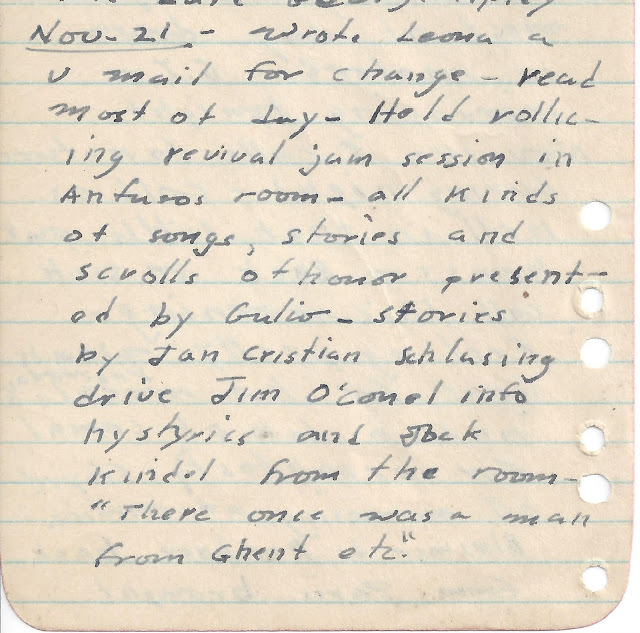 Nov-21 - wrote Leona a
v mail for change - read
most of day - Held rollic-
ing revival jam session in
Anfusos room - all kinds
of songs, stories and
scrolls of honor present-
ed by Gulio - stories
by Jan Cristian Schlusing
drive Jim O'Conel into
hystyrics and Jack
Kindel from the room -
"There once was a man
from Ghent etc."